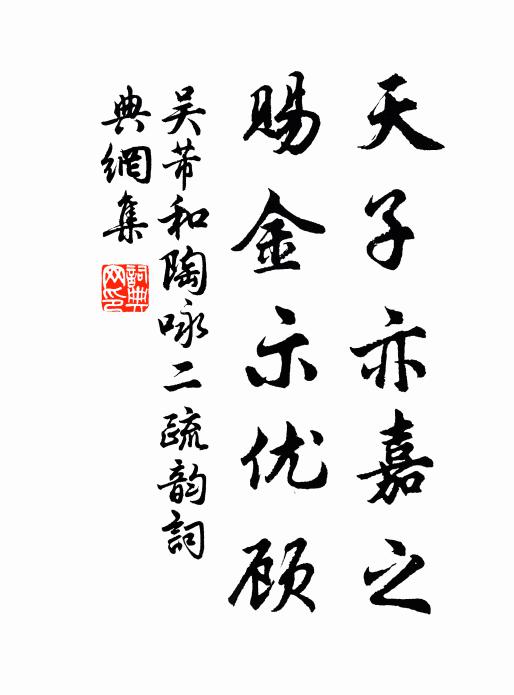 天子亦嘉之
赐金示优顾
吴芾和陶咏二疏韵詞
典網集
詞典网印